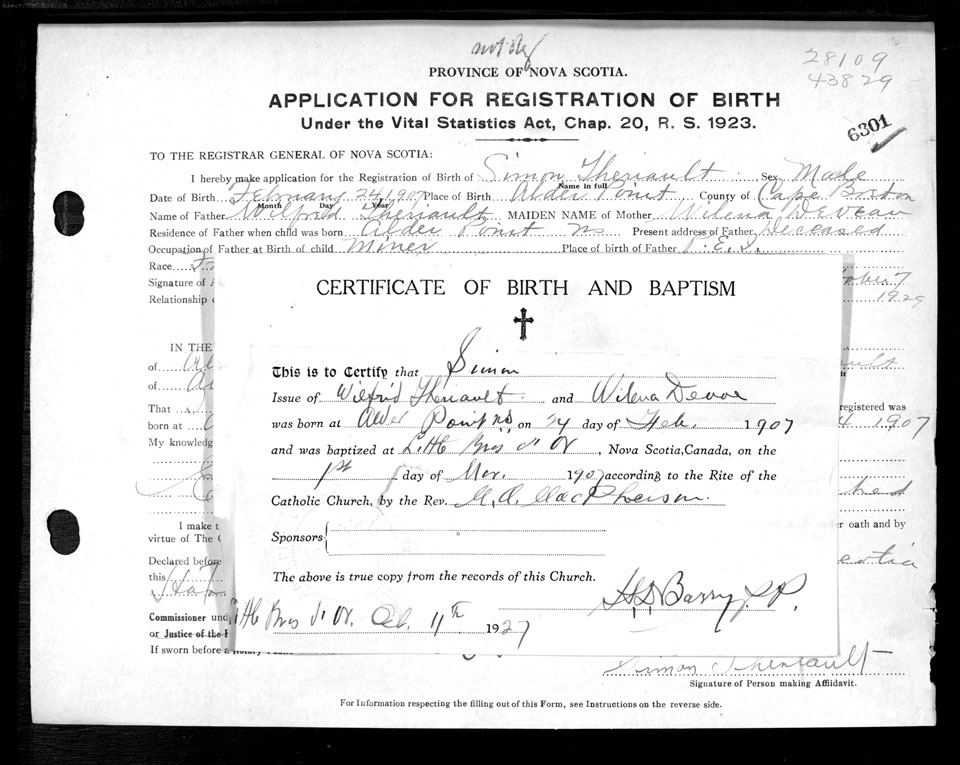 28109
43829
PROVINCE OF NOVA SCOTIA.
APPLICATION FOR REGISTRATION OF BIRTH
Under the Vital Statistics Act, Chap. 20, R. S. 1923.
6301
TO THE REGISTRAR GENERAL OF NOVA SCOTIA:
I hereby make application for the Registration of Birth of Simon Theriault Sex Male
Name in full
Date of Birth February 24 1907 Place of Birth Alder Point County of Cape Breton
Month Day Year
Name of Father Wilfrid Theriault MAIDEN NAME of Mother Wilena Deveau
Residence of Father when child was born Alder Point NS Present address of Father Deceased
Occupation of Father at Birth of child Miner Place of birth of Father P.E.I.
Race
Signature of 7
Relationship 1929
CERTIFICATE OF BIRTH AND BAPTISM
This is to Certify that Simon
Issue of Wilfrid Theriault and Wilena Devoe
was born at Alder Point NS on 24 day of Feb. 1907
and was baptized at Little Bras d'Or, Nova Scotia, Canada, on the
1st day of Mar. 1907 according to the Rite of the
Catholic Church, by the Rev. MacPherson
Sponsors
The above is true copy from the records of this Church.
Barry P.P.
Little Bras d'Or. 11th 1927
IN THE
of
of
That registered was
born at 1907
My knowledg
I make t r oath and by
virtue of The
Declared before
this
Commissioner und
or Justice of the
If sworn before a Notary
Simon Theriault
Signature of Person making Affidavit.
For Information respecting the filling out of this Form, see Instructions on the reverse side.